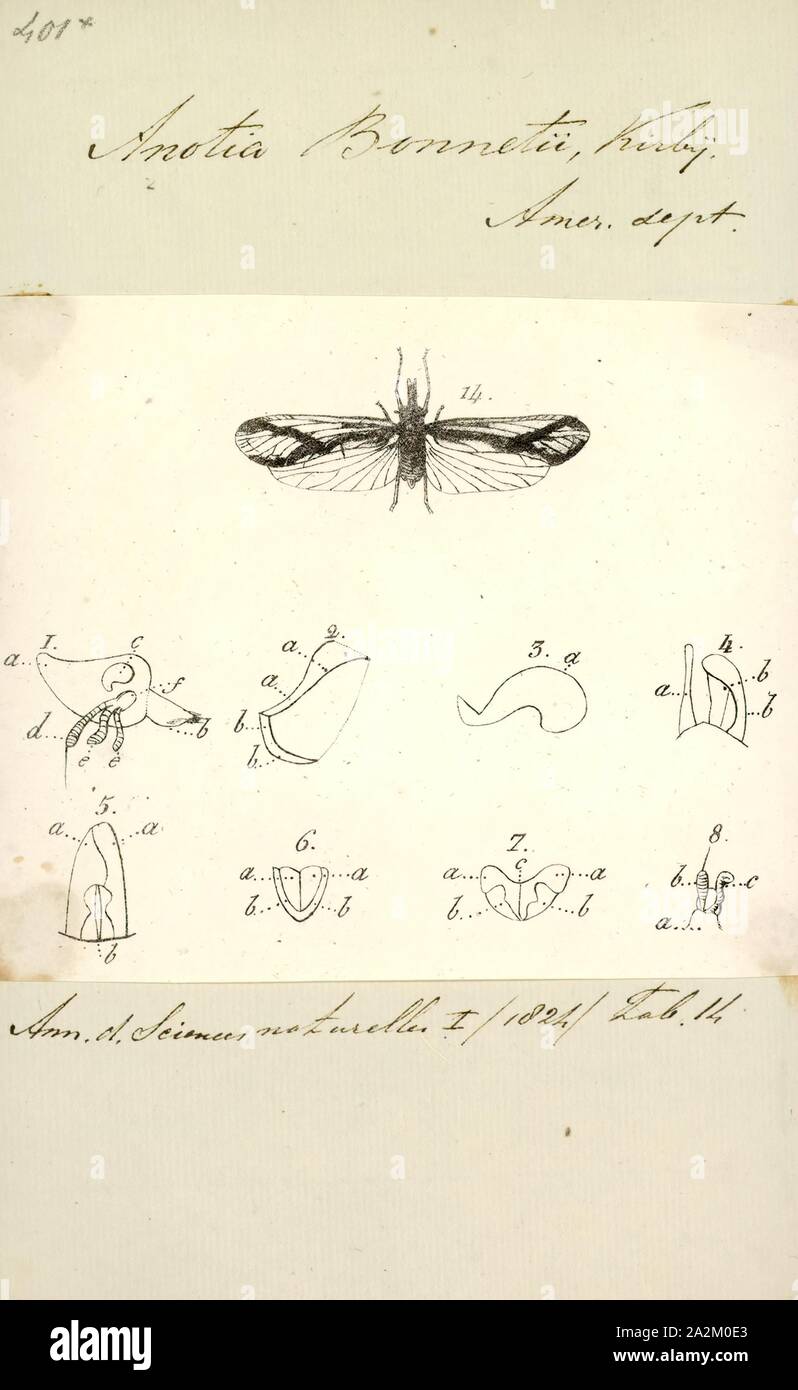 401*
Anotia Bonnetii, Kirbij.
Amer. sept.
14.
1. c 2. 3. a 4.
a.. a... f a.. b
d... b b.. b
e e b..
5. 6. 7. 8.
a.. ..a a.. ..a c a.. ..a b.. ..c
b b.. ..b b.. ..b a..
Ann. d. Sciences naturelles I /1824/ Tab. 14
alamy
Image ID: 2A2M0E3
www.alamy.com